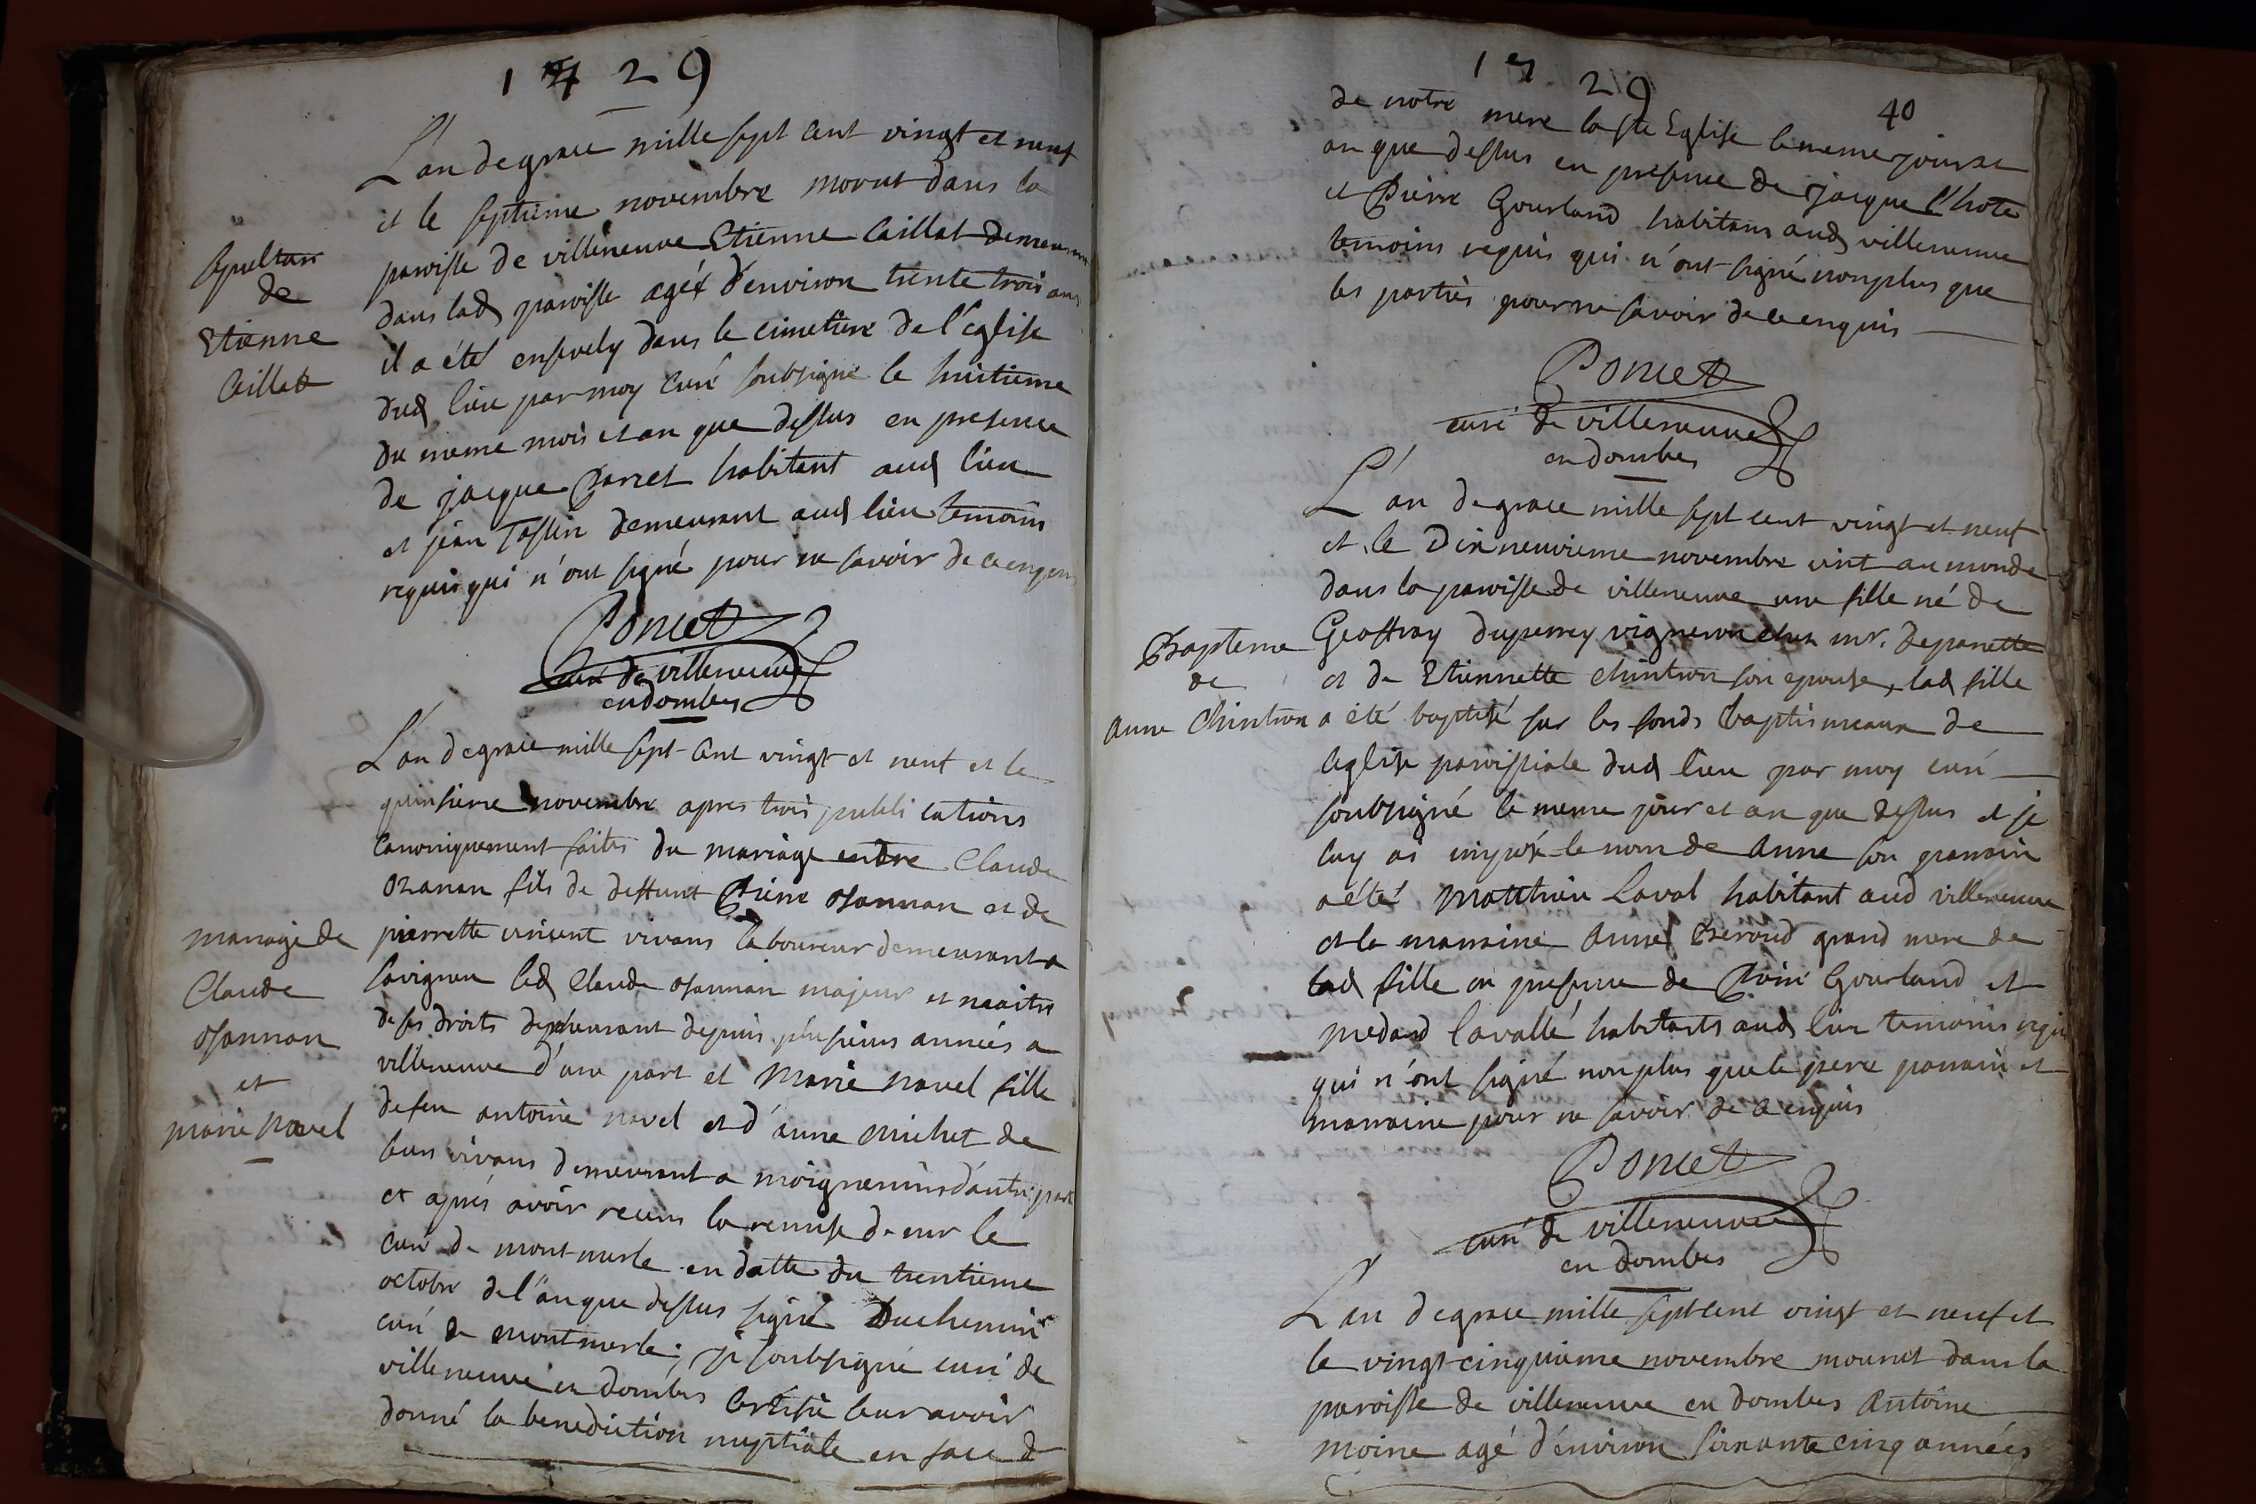 1729
L'an de grace mille sept cent vingt et neuf
et le septieme novembre morut dans la
paroisse de villeneuve Etienne Caillat demeurant
dans lad paroisse agé d'environ trente trois ans
il a été ensevely dans le cimetiere de l'Eglise
dud lieu par moy curé soubsigné le huitieme
du meme mois et an que dessus en presence
de jacque Parret habitant aud lieu
et jean demeurant aud lieu temoins
requis qui n'ont signé pour ne savoir de ce enquis
Sepulture
de
Etienne
Caillat
Poncet
curé de villeneuve
en dombes
L'an de grace mille sept cent vingt et neuf et le
quinsieme novembre apres trois publications
canoniquement faites du mariage entre Claude
Ozanan fils de deffunt Pierre osannan et de
pierrette vincent vivans laboureur demeurant a
Savigneu led Claude osannan majeur et maitre
de ses droits demeurant depuis plusieurs années a
villeneuve d'une part et Marie navel fille
de feu antoine navel et d'anne michet de
leurs vivans demeurant a moignenins d'autre part
et aprés avoir receu la remise de mr le
curé de montmerle en datte du trentieme
octobre de l'an que dessus signé Duchemin
curé de montmerle; je soubsigné curé de
villeneuve en dombes Certifie leur avoir
donné la benediction nuptiale en face de
mariage de
Claude
osannan
et
marie Navel
1729
40
de notre mere la ste Eglise le meme jour et
an que dessus en presence de jacque l'hote
et Pierre Gourland habitans aud villeneuve
temoins requis qui n'ont signé non plus que
les parties pour ne savoir de ce enquis
Poncet
curé de villeneuve
en dombes
L'an de grace mille sept cent vingt et neuf
et le dix neuvieme novembre vint au monde
dans la paroisse de villeneuve une fille né de
Geoffray duperrey vigneron chez mr. depanette
et de Etiennette Chintron son epouse, lad fille
a été baptisé sur les fonds baptismeaux de
l'eglise paroissiale dud lieu par moy curé
soubsigné le meme jour et an que dessus et je
luy ai imposé le nom de Anne son parrain
a été Matthieu Laval habitant aud villeneuve
et la marraine Anne Beroud grand mere de
lad fille en presence de Pierre Gourland et
medard lavallé habitants aud lieu temoins requis
qui n'ont signé non plus que le pere parrain et
marraine pour ne savoir de ce enquis
Bapteme
de
Anne Chintron
Poncet
curé de villeneuve
en dombes
L'an de grace mille sept cent vingt et neuf et
le vingt cinquieme novembre mourut dans la
paroisse de villeneuve en dombes Antoine
moine agé d'environ soixante cinq années